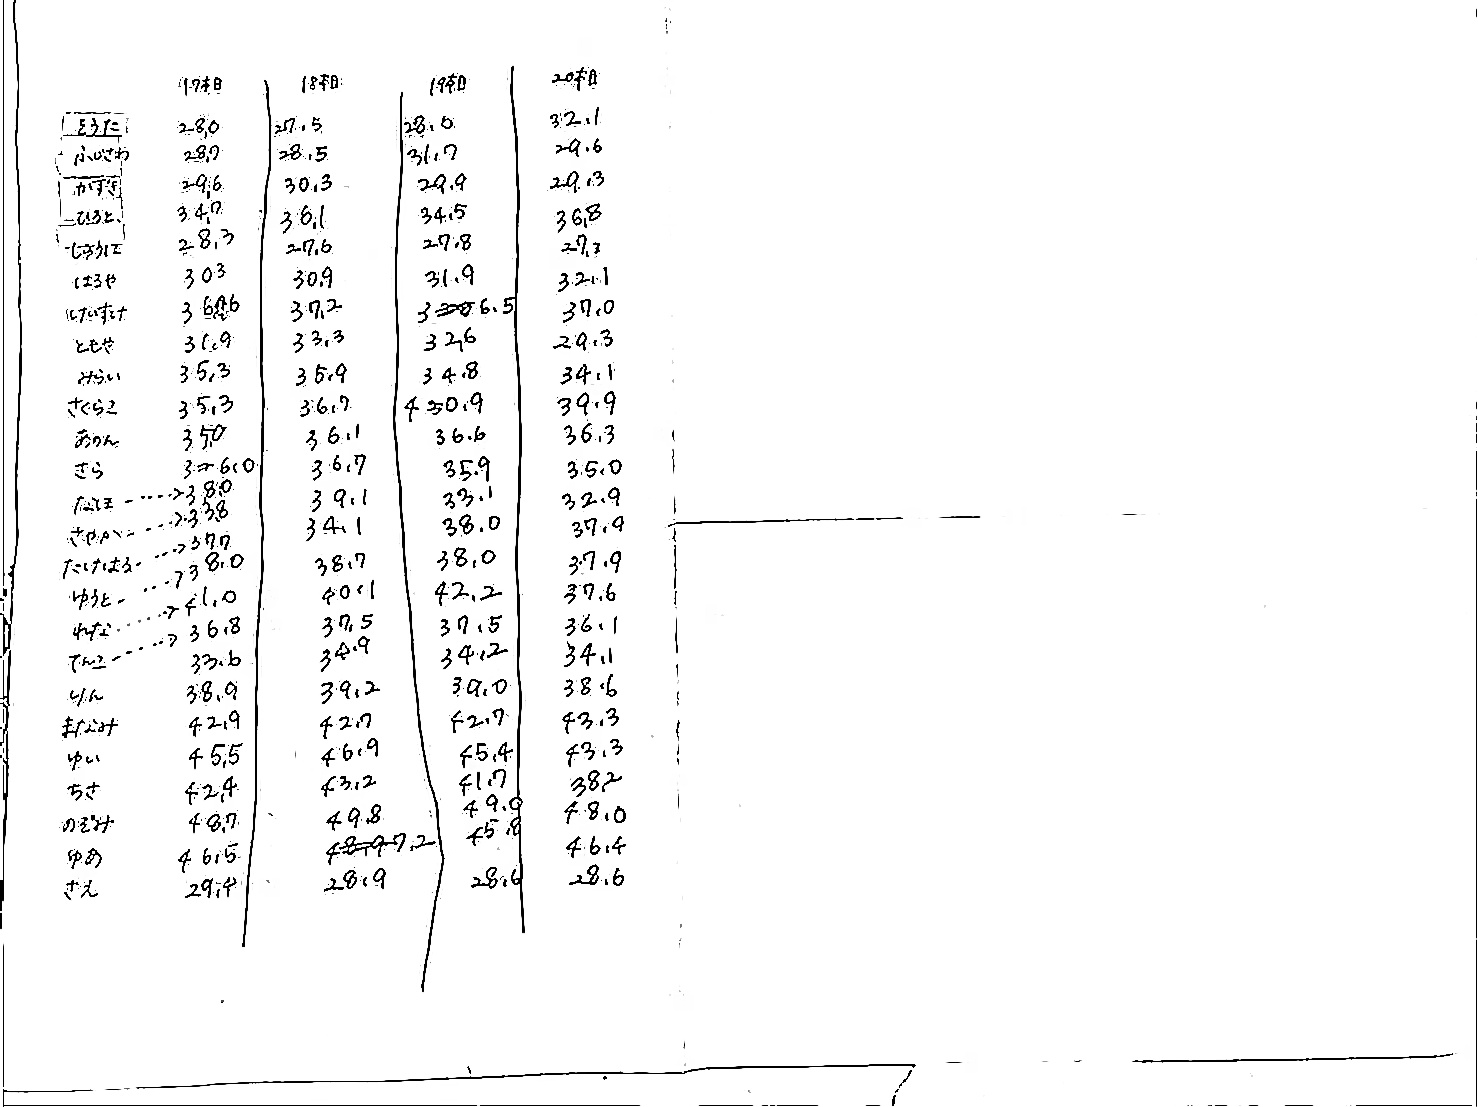 17本目 18本目 19本目 20本目
そうた 28,0 27.5 28.0 32.1
ふじさわ 28,7 28.5 31.7 29.6
かずき 29,6 30.3 29.9 29.3
ひろと 34,7 36,1 34.5 36,8
しょうご 28,3 27,6 27.8 27,3
はるや 303 30,9 31.9 32.1
36 37,2 6.5 37.0
ともや 31.9 33.3 32,6 29.3
みらい 35,3 35.9 34.8 34.1
さくらこ 35,3 36.7 40.9 39.9
あのん 35,0 36.1 36.6 36.3
さら 36.0 36.7 35.9 35.0
38.0 39.1 33.1 32.9
さやか 33,8 34.1 38.0 37.9
たけはる 37,7 38.7 38.0 37.9
ゆうと 38.0 40.1 42.2 37.6
れな 41.0 37,5 37.5 36.1
てんこ 36.8 34.9 34.2 34.1
33.6
りん 38,9 39.2 39.0 38.6
まなみ 42,9 42,7 42,7 43,3
ゆい 45,5 46.9 45.4 43.3
ちさ 42,4 43,2 41.7 38,2
のぞみ 48,7 49.8 49.0 48.0
ゆめ 46,5 47,2 45.8 46.4
さえ 29.4 28.9 28.6 28.6